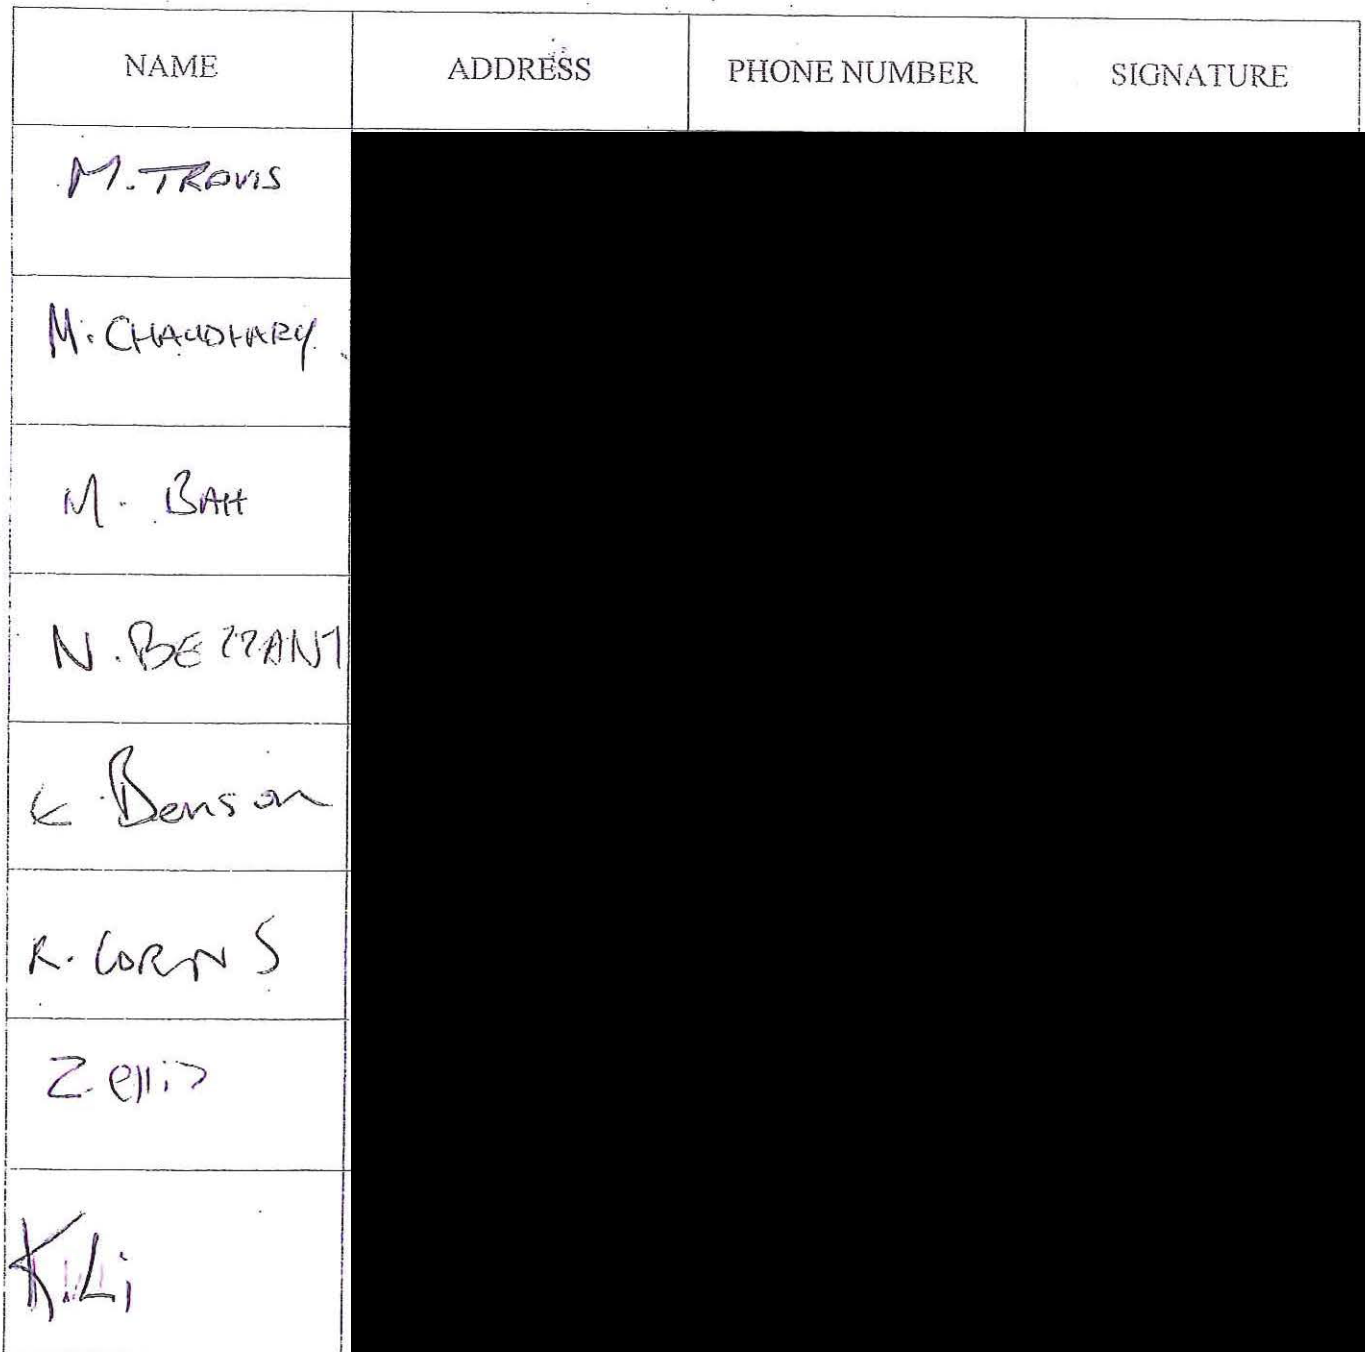 NAME ADDRESS PHONE NUMBER SIGNATURE
M. TRAVIS
M. CHAUDHARY
M. BAH
N. BEZZANT
K Benson
R.
Z ellis
K. Li